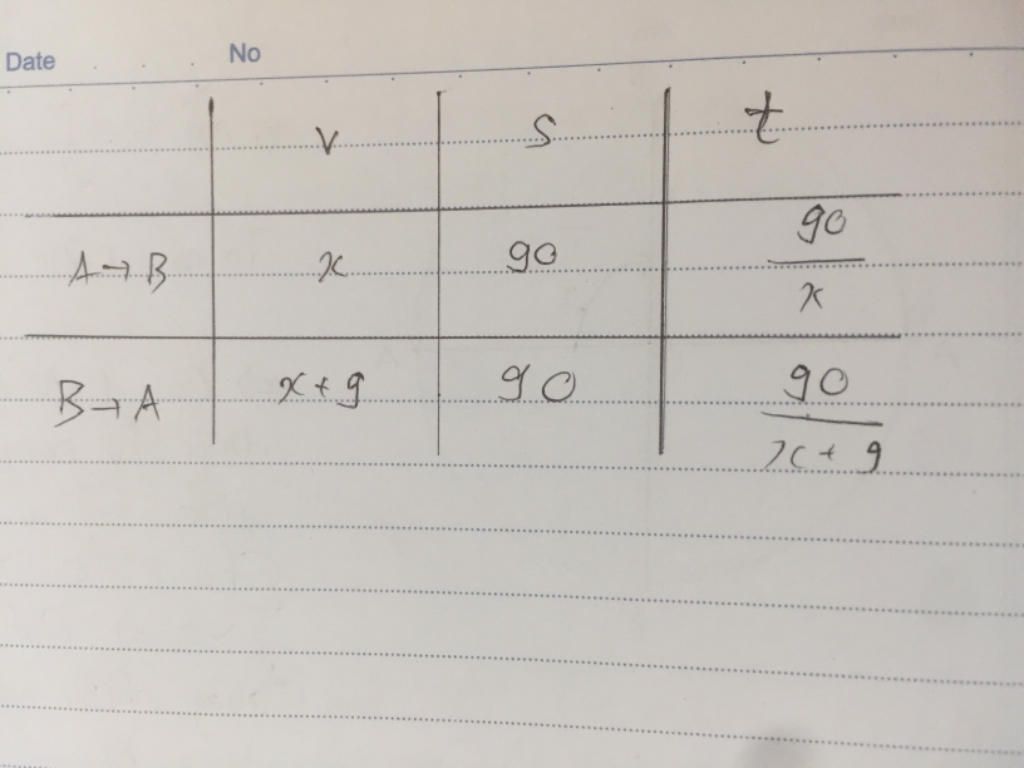 Date No
v s t
A→B x 90 90/x
B→A x+9 90 90/x+9